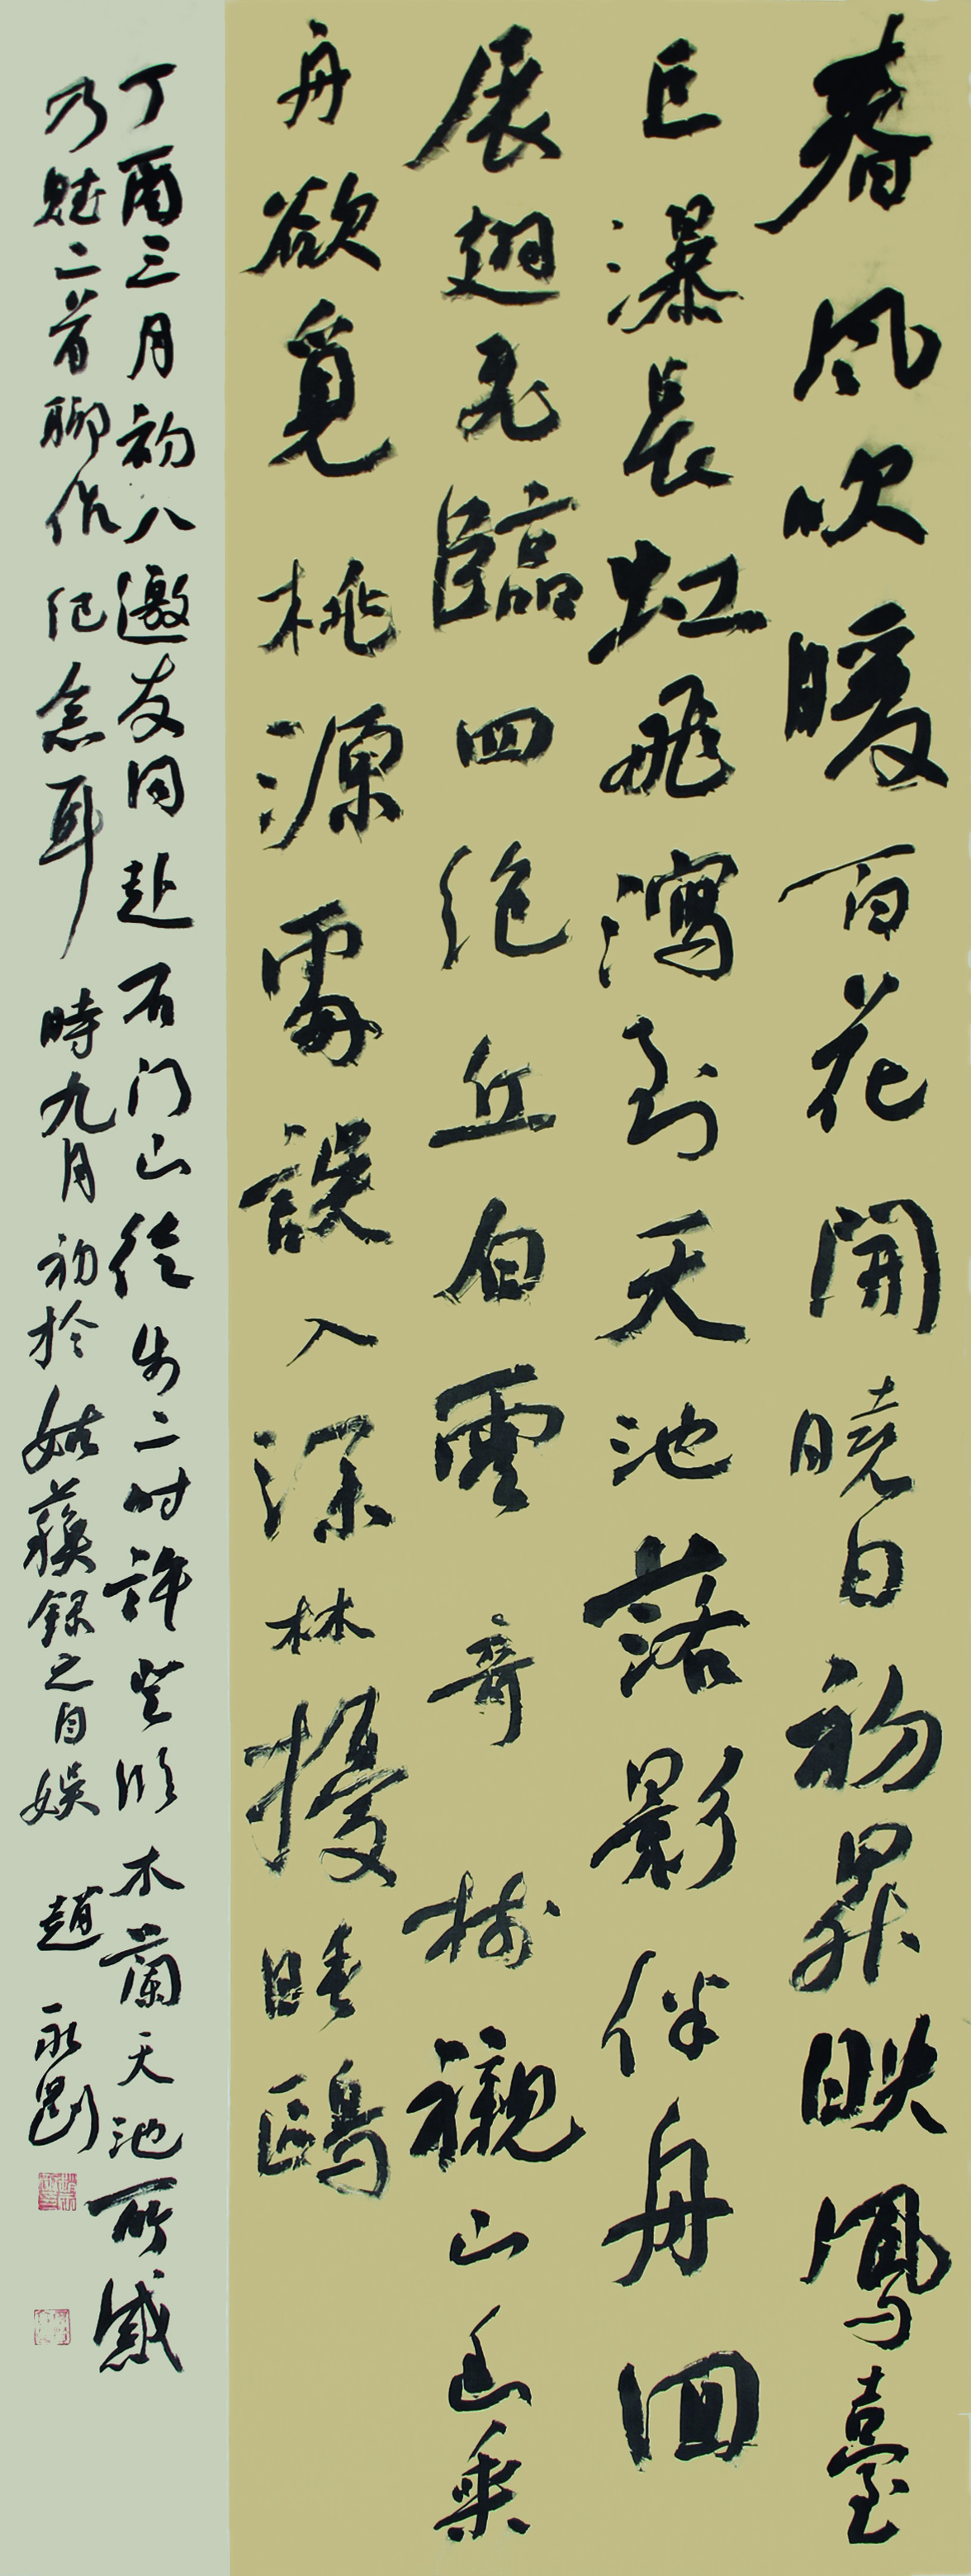 春風吹暖百花開曉日初昇映鳳臺
巨瀑長虹飛瀉到天池落影伴舟回
展翅飛臨四絕丘白雲奇樹襯山幽乘
舟欲覓桃源處誤入深林擾睡鷗
丁酉三月初八邀友同赴石门山徒步二时許登临木蘭天池所感
乃賦二首聊作纪念耳時九月初於姑蘇錄之自娱趙永剛